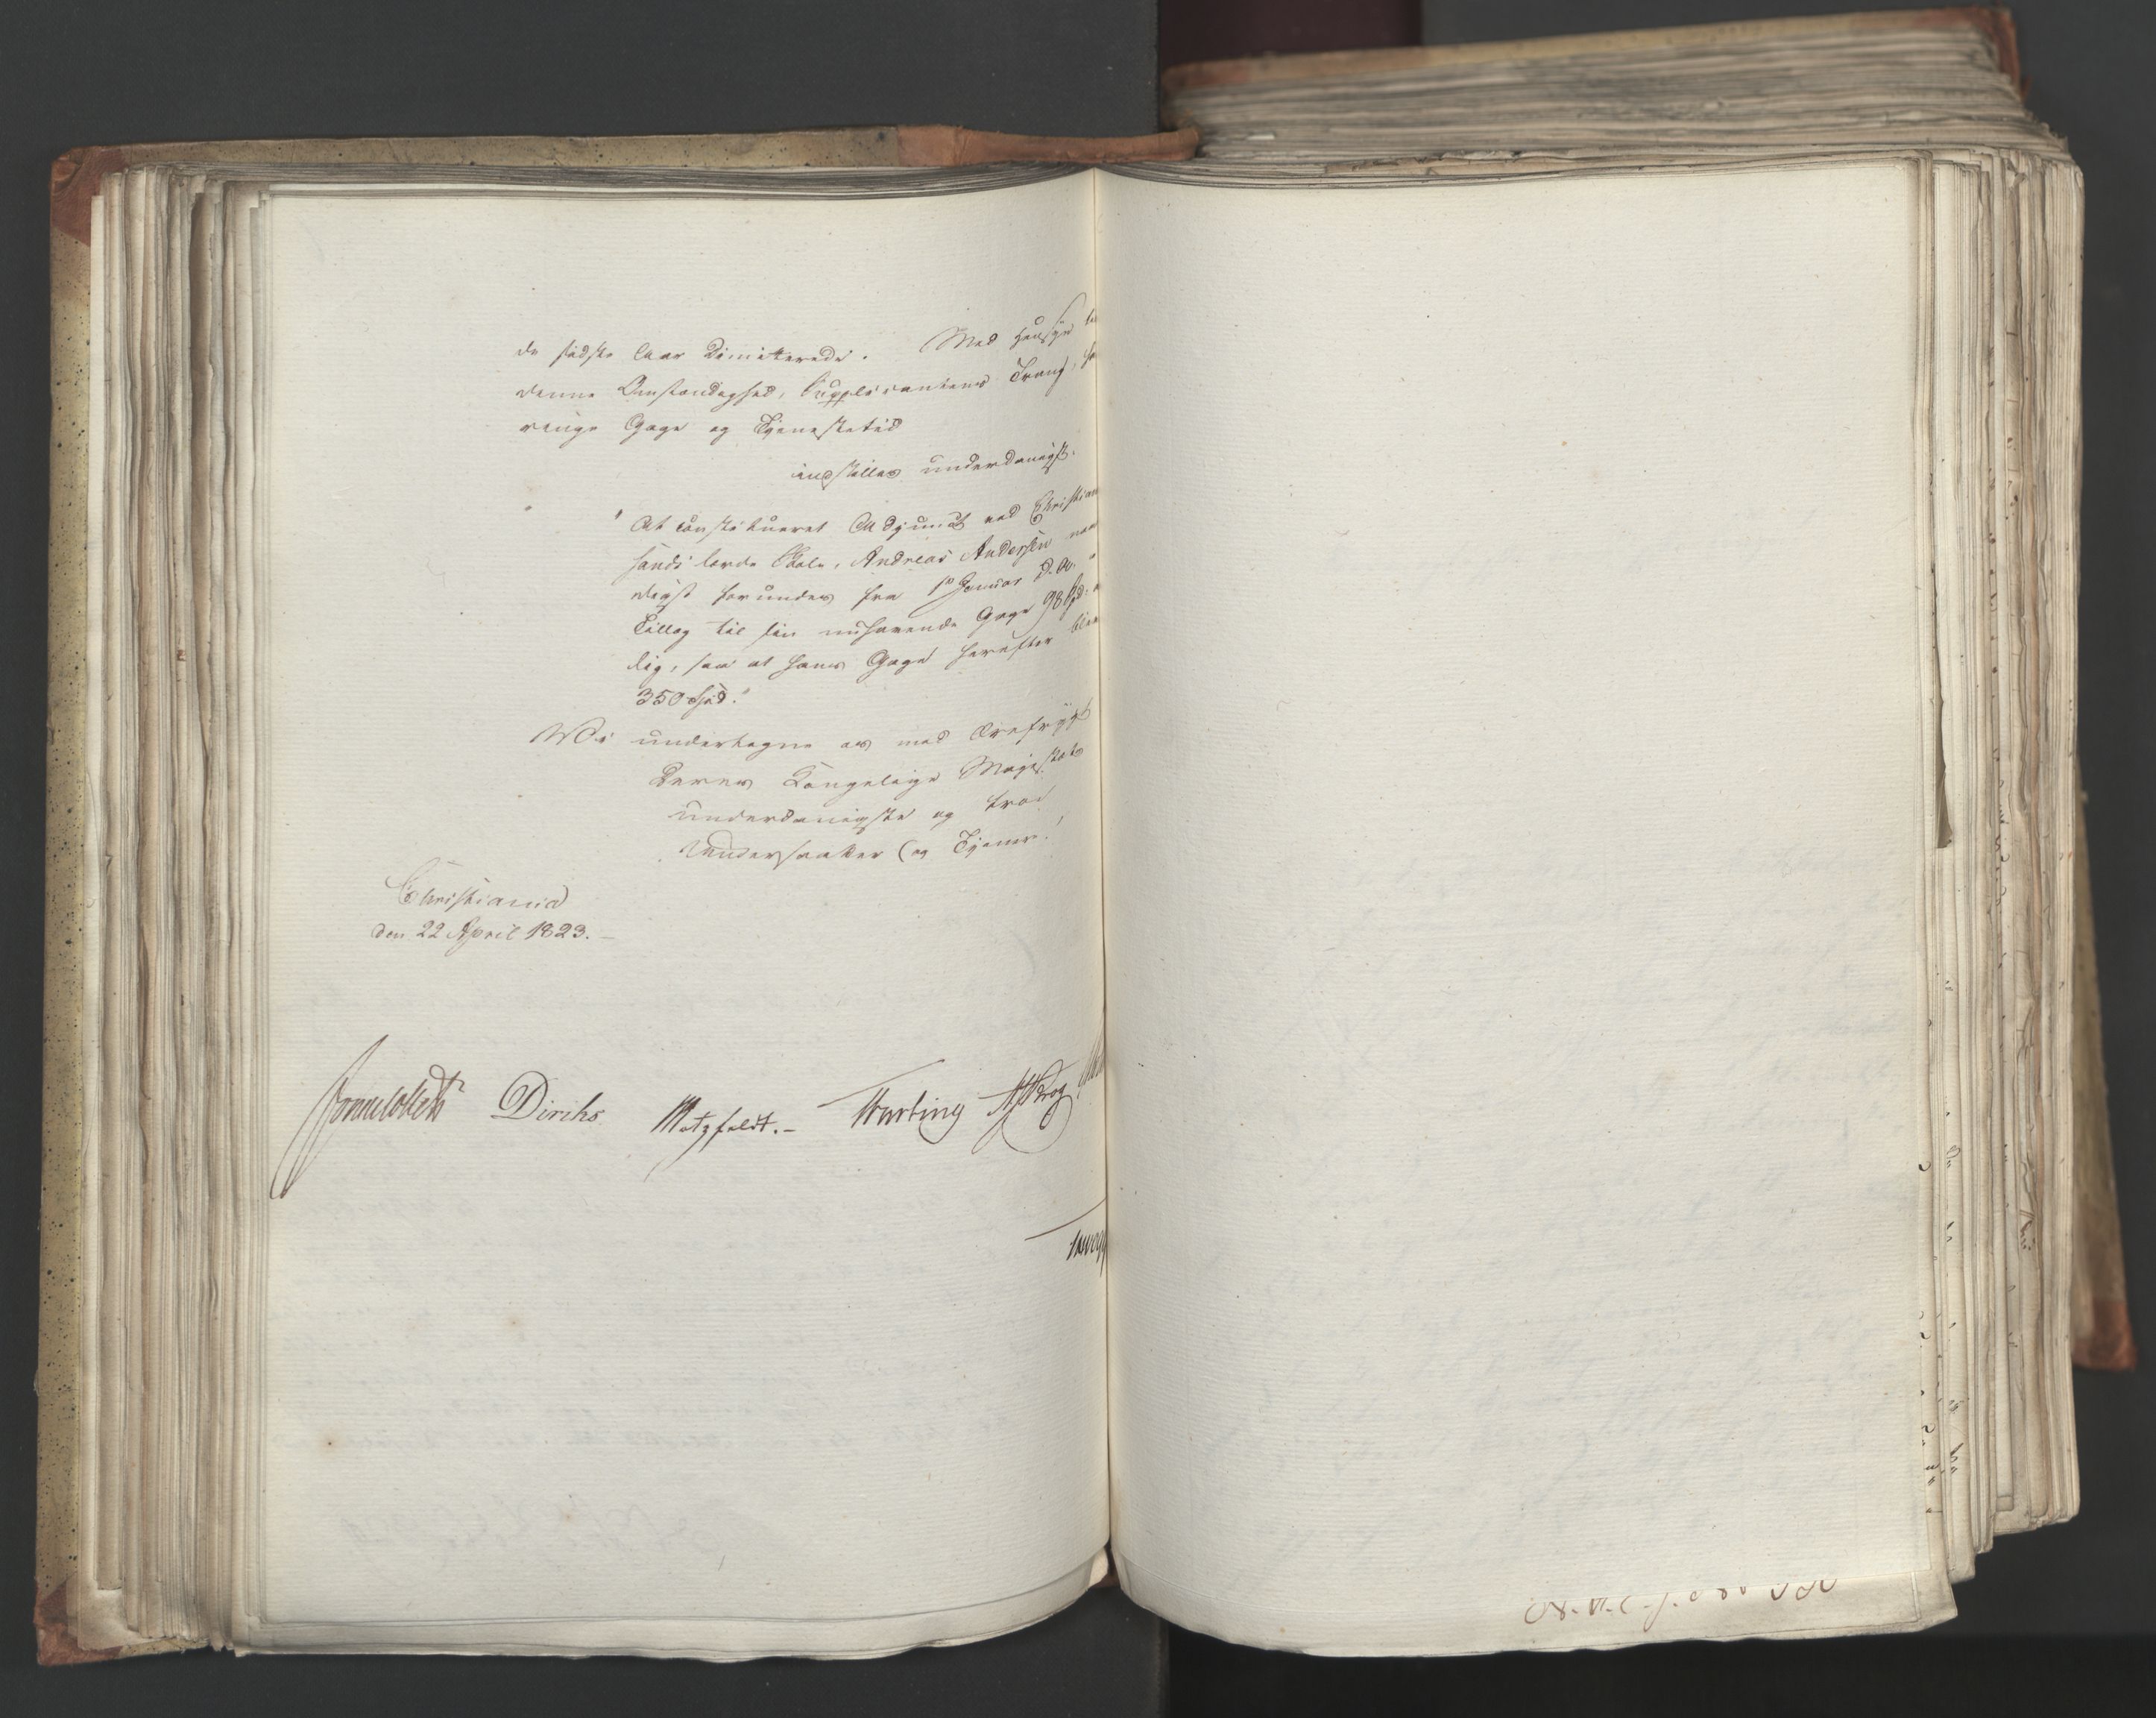 de sidste Aar Dimitterede. Med Hensyn til
denne Omstændighed, Supplicantens Trang,
ringe Gage og Tjenestetid
indstilles underdanigst:
"At constitueret Adjunct ved Christian
sands lærde Skole, Andreas Andersen naa
digst forundes fra 1ste Januar d. A.
Tillæg til sin nuhavende Gage 98 Spd.
lig, saa at hans Gage herefter bliver
350 Spd."
Vi undertegne os med Ærefrygt
Deres Kongelige Majestæts
underdanigste og troe
Undersaatter og Tjenere.
Christiania
den 22 April 1823.
Sommerhielm Diriks Motzfeldt. Treschow Krog